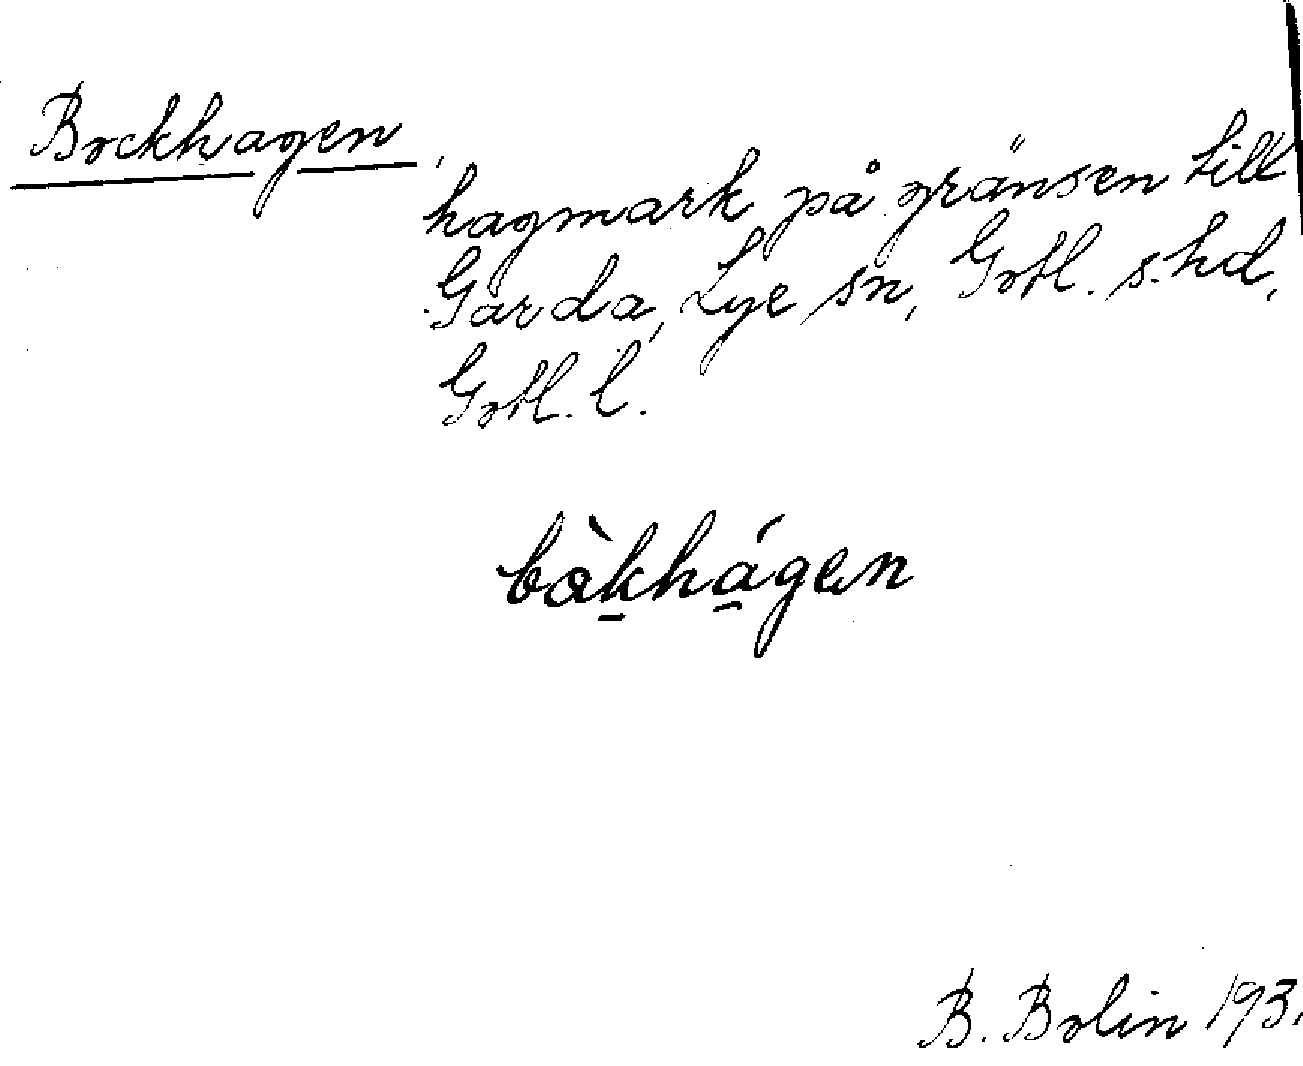 Bockhagen,
hagmark på gränsen till
Garda, Lye sn, Gotl. s. hd,
Gotl. l.
bòk̠há̠gen
B. Bolin 193